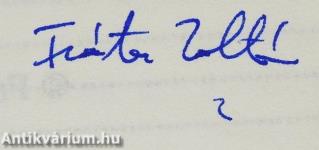 Fráter Zoltán
Antikvárium.hu